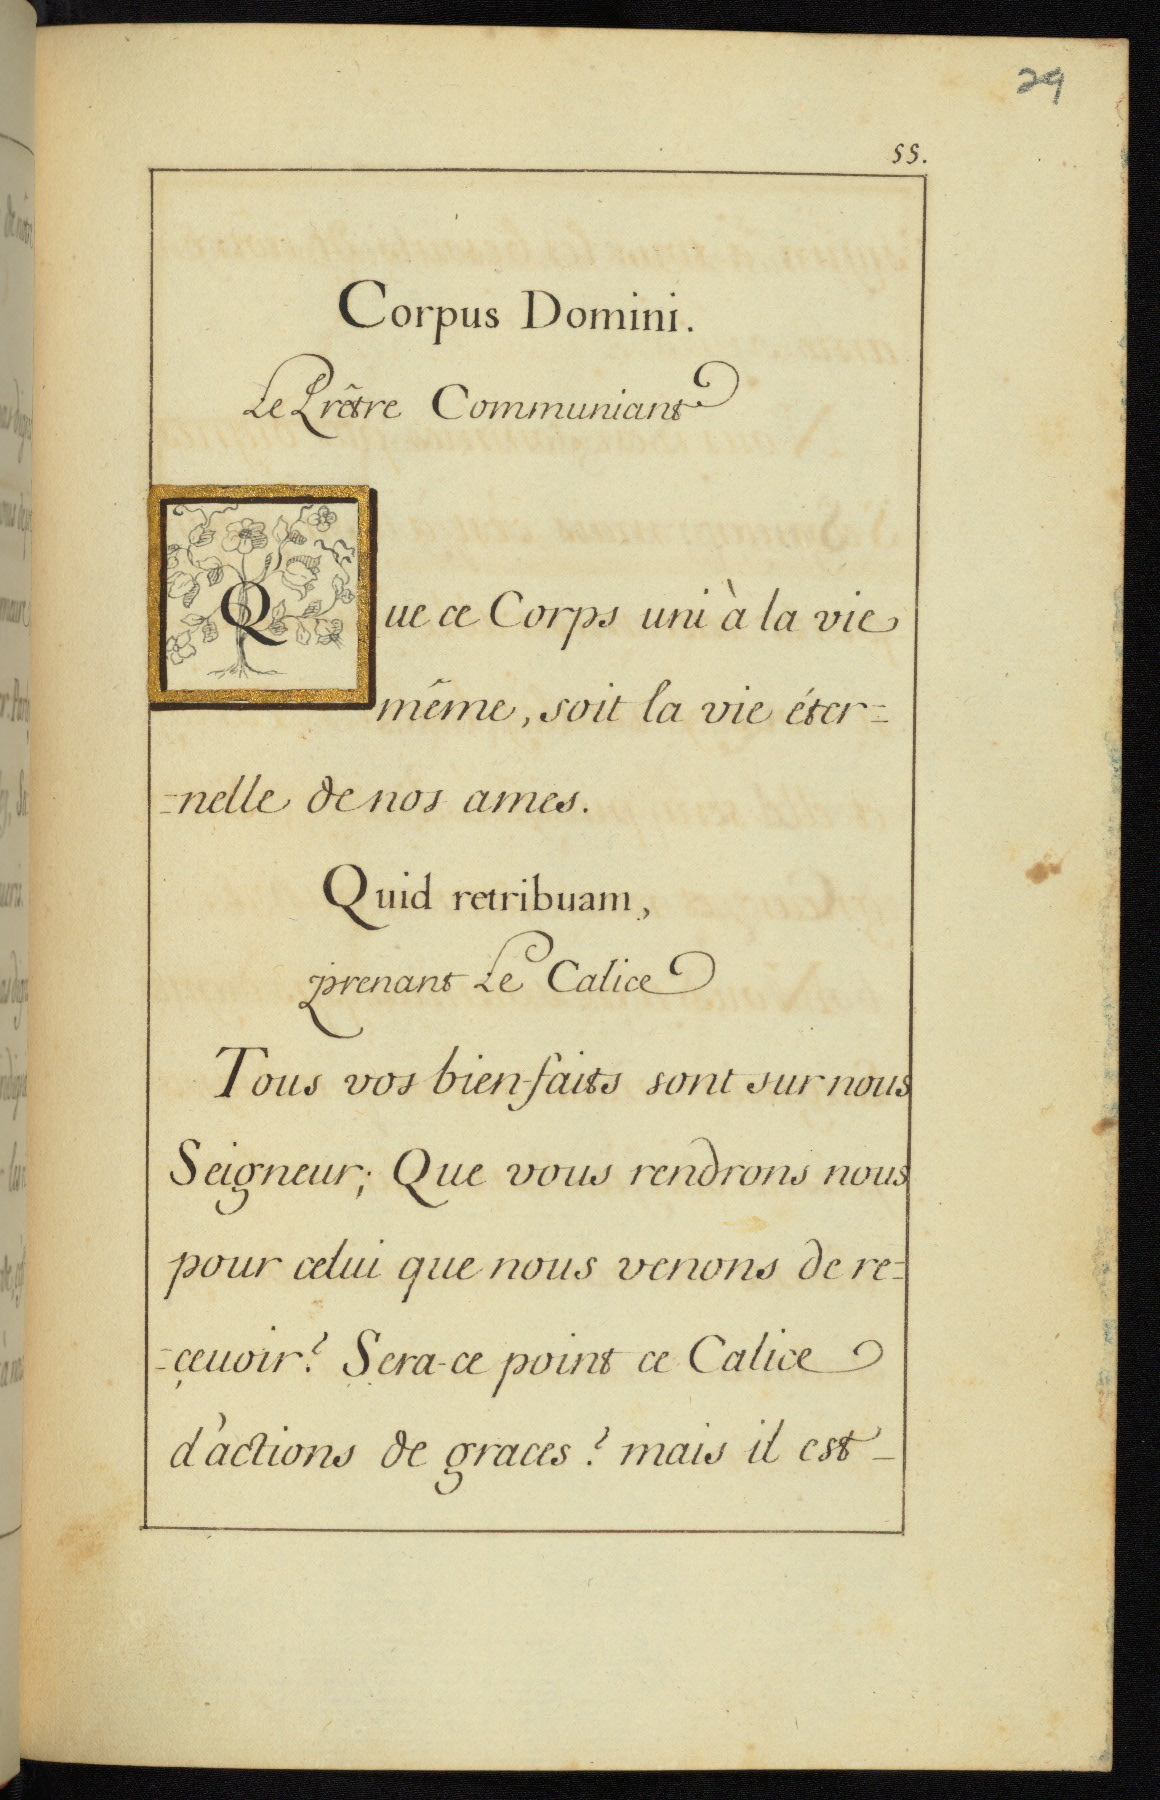 29
55.
Corpus Domini.
Le Prêtre Communiant
Que ce Corps uni à la vie
même, soit la vie éter=
=nelle de nos ames.
Quid retribuam,
prenant Le Calice
Tous vos bien-faits sont sur nous
Seigneur; Que vous rendrons nous
pour celui que nous venons de re=
=çeuoir? Sera-ce point ce Calice
d'actions de graces? mais il est